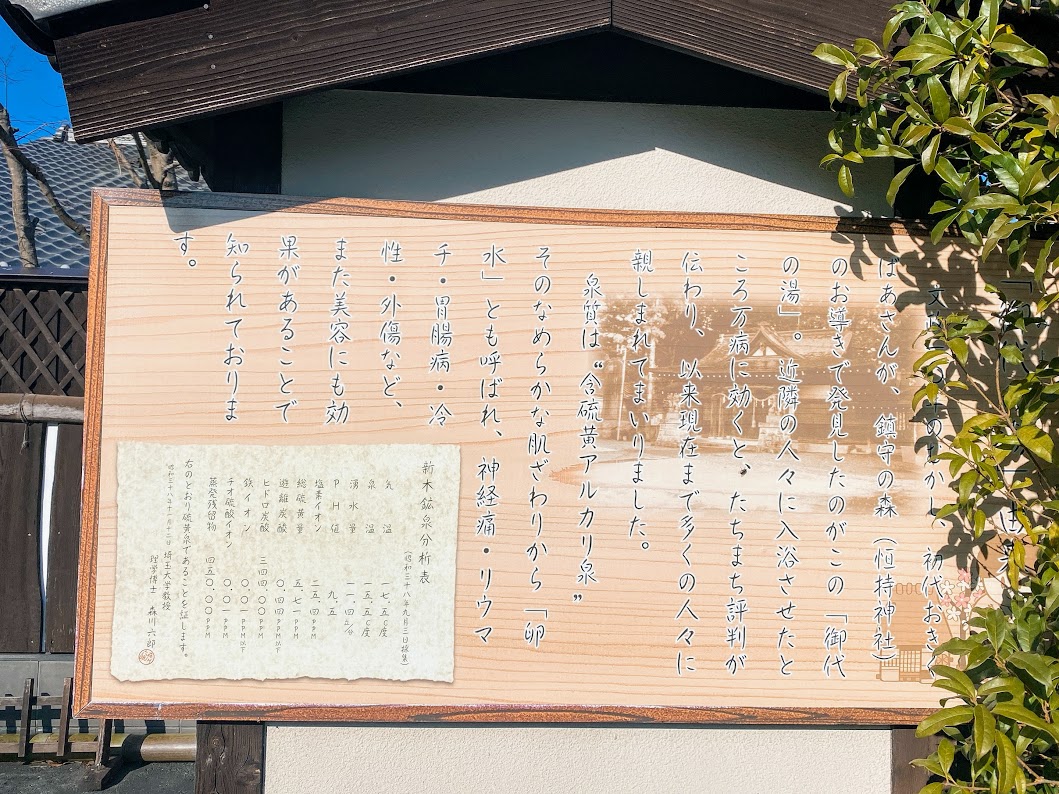 「御代の湯」の由来
文政のむかし、初代おきく
ばあさんが、鎮守の森（恒持神社）
のお導きで発見したのがこの「御代
の湯」。近隣の人々に入浴させたと
ころ万病に効くと、たちまち評判が
伝わり、以来現在まで多くの人々に
親しまれてまいりました。
泉質は〝含硫黄アルカリ泉〟
そのなめらかな肌ざわりから「卵
水」とも呼ばれ、神経痛・リウマ
チ・胃腸病・冷
性・外傷など、
また美容にも効
果があることで
知られておりま
す。
新木鉱泉分析表
（昭和三十八年九月三日採集）
気温 一七．五C度
泉温 一五．五C度
湧水量 一一．四ℓ/分
PH値 九．五
塩素イオン 二五．四PPM
総硫黄量 五．七一PPM
遊離炭酸 〇．四四PPM以下
ヒドロ炭酸 三四四．〇〇PPM
鉄イオン 〇．〇一PPM以下
チオ硫酸イオン 〇．〇一PPM
蒸発残留物 四五〇．〇〇PPM
右のとおり硫黄泉であることを証します。
昭和三十八年十一月十二日 埼玉大学教授
理学博士 森川六郎